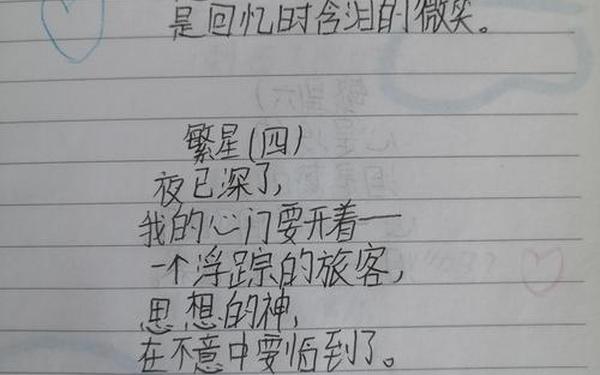 是回忆时含泪的微笑。
繁星(四)
夜已深了,
我的心门要开着——
一个浮踪的旅客,
思想的神,
在不意中要临到了。